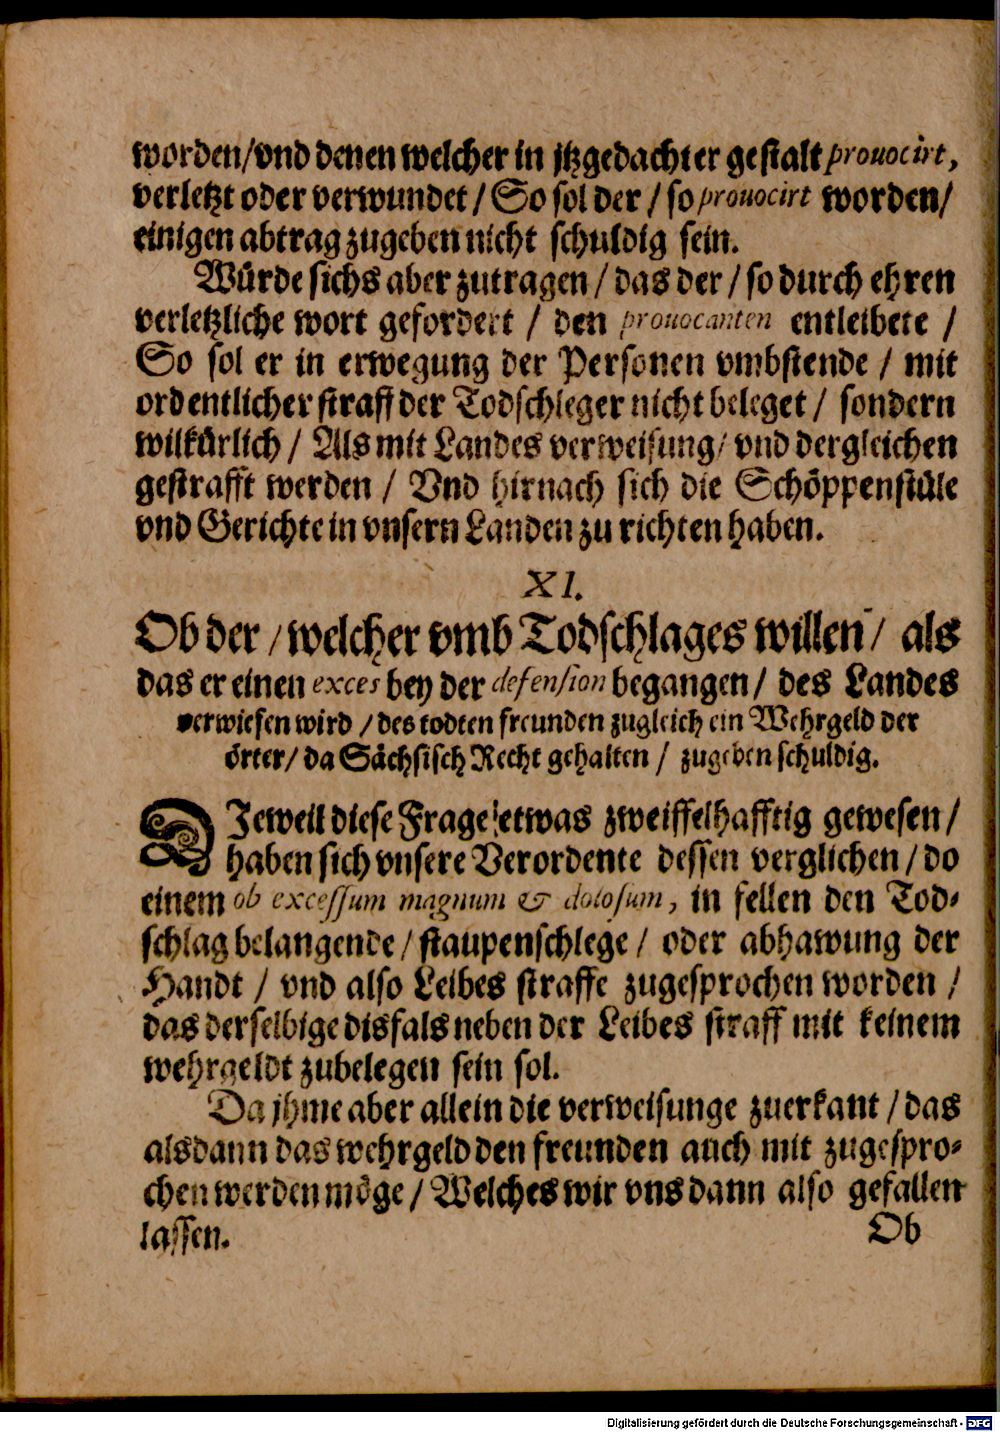 worden/vnd denen welcher in jtzgedachter gestalt prouocirt,
verletzt oder verwundet / So sol der / so prouocirt worden/
einigen abtrag zugeben nicht schuldig sein.
Würde sichs aber zutragen / das der / so durch ehren
verletzliche wort gefordert / den prouocanten entleibete /
So sol er in erwegung der Personen vmbstende / mit
ordentlicher straff der Todschleger nicht beleget / sondern
wilkürlich / Als mit Landes verweisung/ vnd dergleichen
gestrafft werden / Vnd hirnach sich die Schöppenstüle
vnd Gerichte in vnsern Landen zu richten haben.
XI.
Ob der / welcher vmb Todschlages willen / als
das er einen exces bey der defension begangen / des Landes
verwiesen wird / des todten freunden zugleich ein Wehrgeld der
örter/ da Sächsisch Recht gehalten / zugeben schuldig.
DJeweil diese Frage etwas zweiffelhafftig gewesen /
haben sich vnsere Verordente dessen verglichen / do
einem ob excessum magnum & dolosum, in fellen den Tod-
schlag belangende / staupenschlege / oder abhawung der
Handt / vnd also Leibes straffe zugesprochen worden /
das derselbige disfals neben der Leibes straff mit keinem
wehrgeldt zubelegen sein sol.
Da jhme aber allein die verweisunge zuerkant / das
alsdann das wehrgeld den freunden auch mit zugespro-
chen werden möge / Welches wir vns dann also gefallen
lassen.
Ob
Digitalisierung gefördert durch die Deutsche Forschungsgemeinschaft - DFG